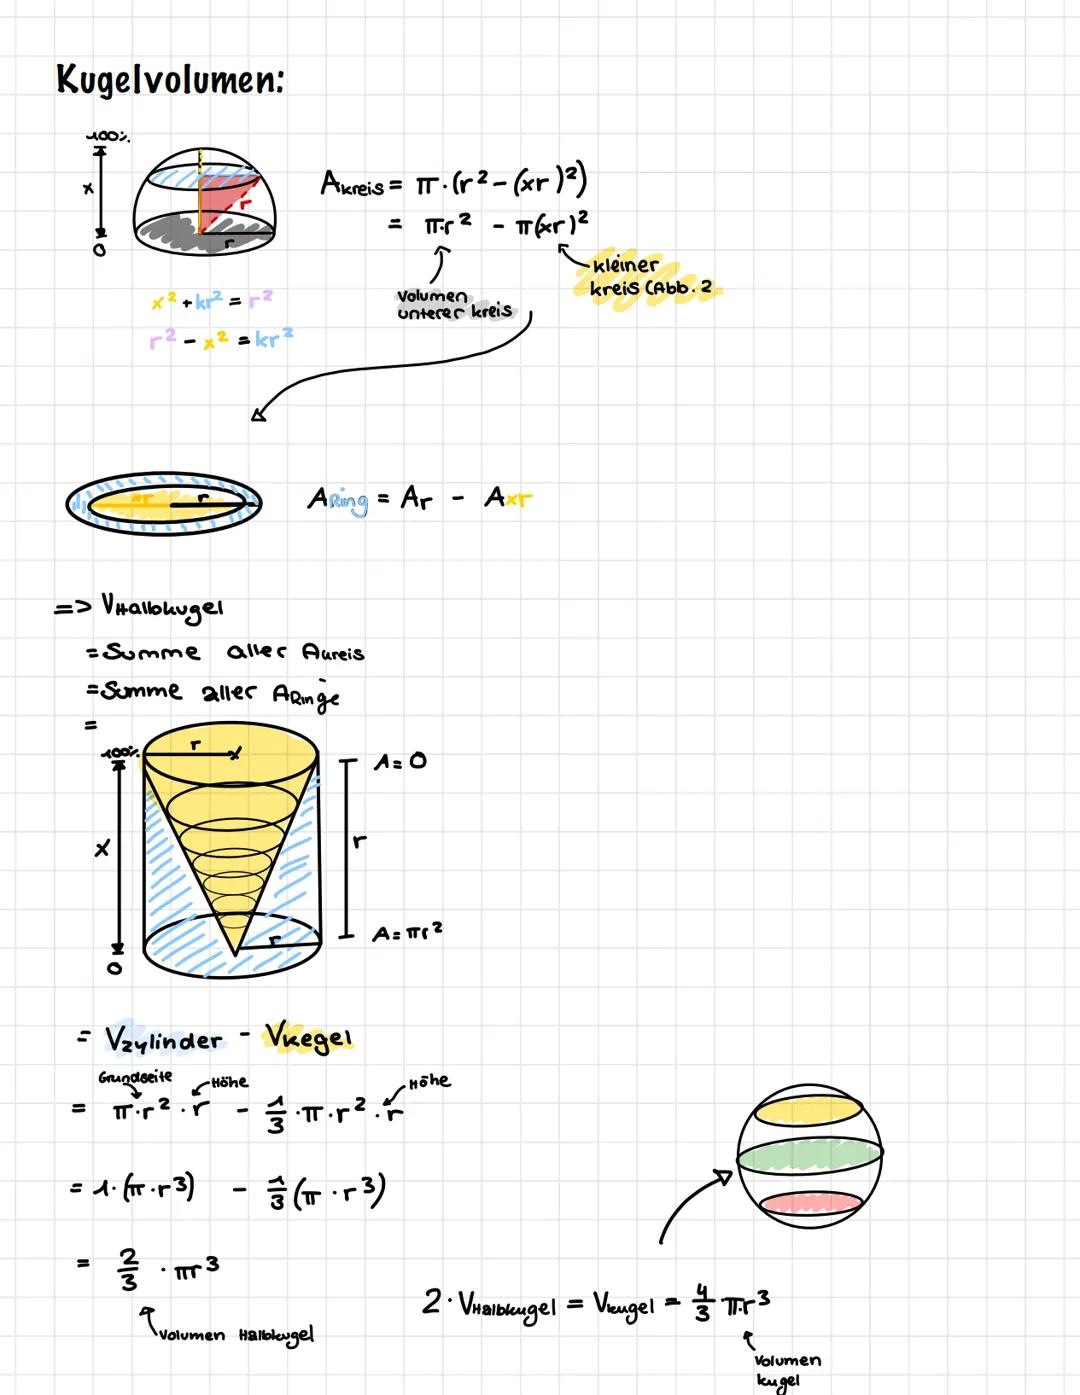 Kugelvolumen:
100%
x
0
r
r
Akreis = π·(r²-(xr)²)
= π·r² - π(xr)²
Volumen
unterer kreis
kleiner
kreis (Abb. 2
x² + kr² = r²
r² - x² = kr²
xr
r
ARing = Ar - Axr
=> VHalbkugel
= Summe aller Akreis
= Summe aller ARinge
=
100%
x
0
r
r
A = 0
r
A = πr²
= Vzylinder - Vkegel
Grundseite
Höhe
Höhe
= π·r²·r - 1/3·π·r²·r
= 1·(π·r³) - 1/3(π·r³)
= 2/3·πr³
Volumen Halbkugel
2·VHalbkugel = Vkugel = 4/3·π·r³
Volumen
kugel